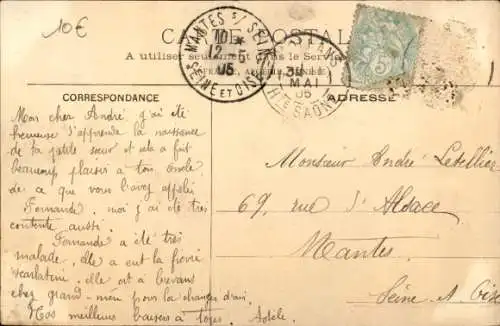 10€
CARTE POSTALE
A utiliser seulement
MANTES S/ SEINE
12-5
05
SEINE ET OISE
MAI
05
HTE SAÔNE
5
CORRESPONDANCE
ADRESSE
Mon cher André, j'ai été
heureuse d'apprendre la naissance
de ta petite sœur et cela a fait
beaucoup plaisir à ton oncle
de ce que vous l'avez appelé
Fernande, moi j'ai été très
contente aussi.
Fernande a été très
malade, elle a eut la fièvre
scarlatine, elle est à
chez grand-mère pour la changer d'air.
Nos meilleurs baisers à tous. Adèle.
Monsieur André Letellier
69, rue d'Alsace,
Mantes
Seine et Oise